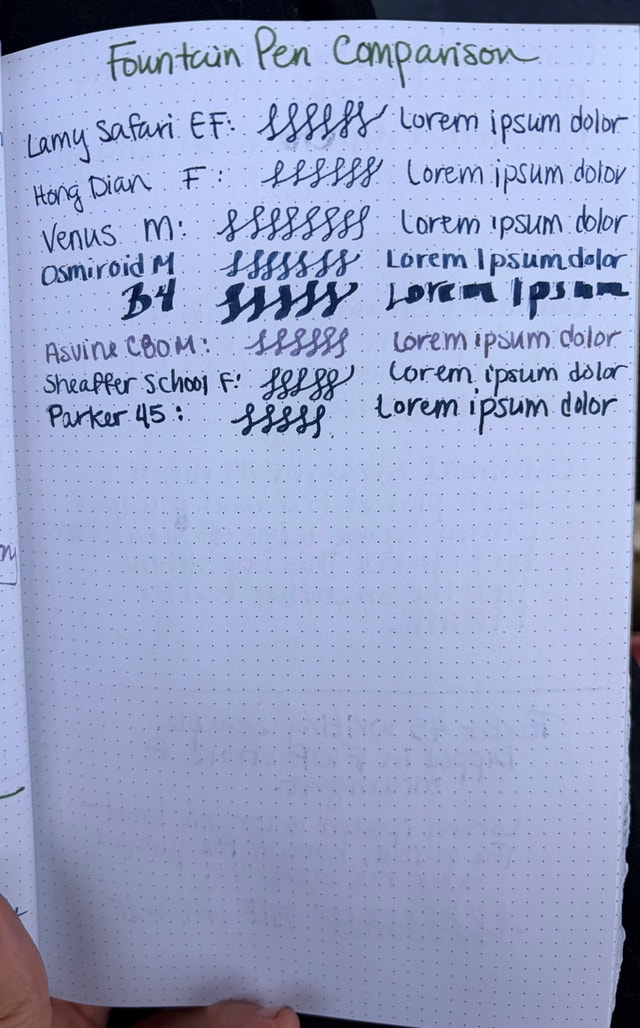 Fountain Pen Comparison
Lamy Safari EF: Lorem ipsum dolor
Hong Dian F: Lorem ipsum dolor
Venus M: Lorem ipsum dolor
Osmiroid M Lorem Ipsum dolor
B4 Lorem Ipsum
Asvine C80 M: Lorem ipsum dolor
Sheaffer School F: Lorem ipsum dolor
Parker 45: Lorem ipsum dolor